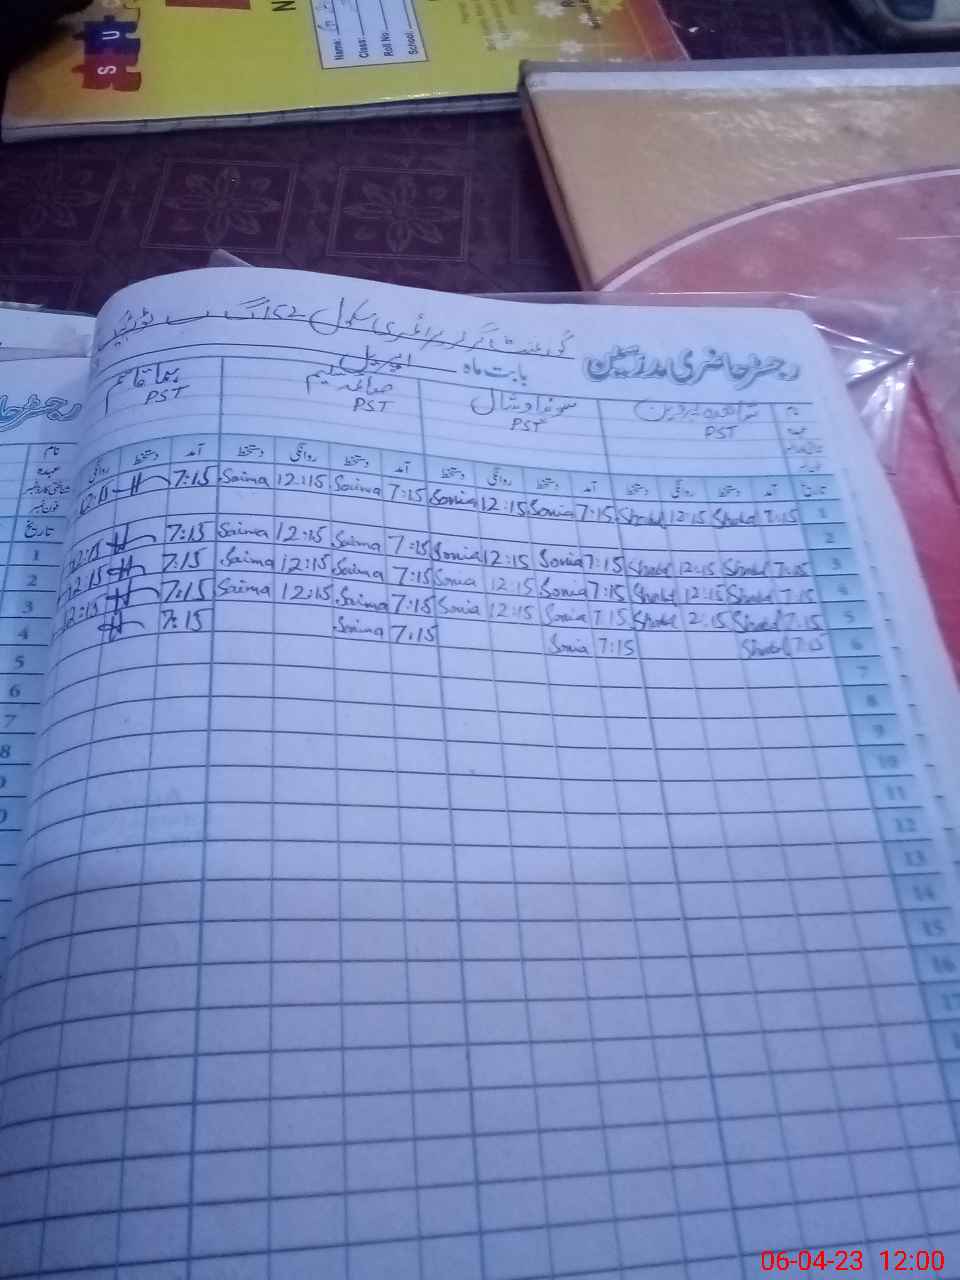 S U
N
Name:
Class:
Roll No.
School:
رجسٹر حاضری مدرسین گورنمنٹ گرلز پرائمری سکول 152 گ ب
بابت ماہ اپریل
نام صائمہ سلیم
عہدہ PST PST PST PST
فون نمبر
تاریخ آمد دستخط روانگی دستخط آمد دستخط روانگی دستخط آمد دستخط روانگی دستخط آمد دستخط روانگی
1 7:15 Shahd 12:15 Shahd 7:15 Sonia 12:15 Sonia 7:15 Saima 12:15 Saima 7:15 12:15
2
3 7:15 Shahd 12:15 Shahd 7:15 Sonia 12:15 Sonia 7:15 Saima 12:15 Saima 7:15 12:15
4 7:15 Shahd 12:15 Shahd 7:15 Sonia 12:15 Sonia 7:15 Saima 12:15 Saima 7:15 12:15
5 7:15 Shahd 12:15 Shahd 7:15 Sonia 12:15 Sonia 7:15 Saima 12:15 Saima 7:15 12:15
6 7:15 Shahd 7:15 Sonia 7:15 Saima 7:15
7
8
9
10
11
12
13
14
15
16
17
نام
عہدہ
فون نمبر
تاریخ
1
2
3
4
5
6
7
8
06-04-23 12:00